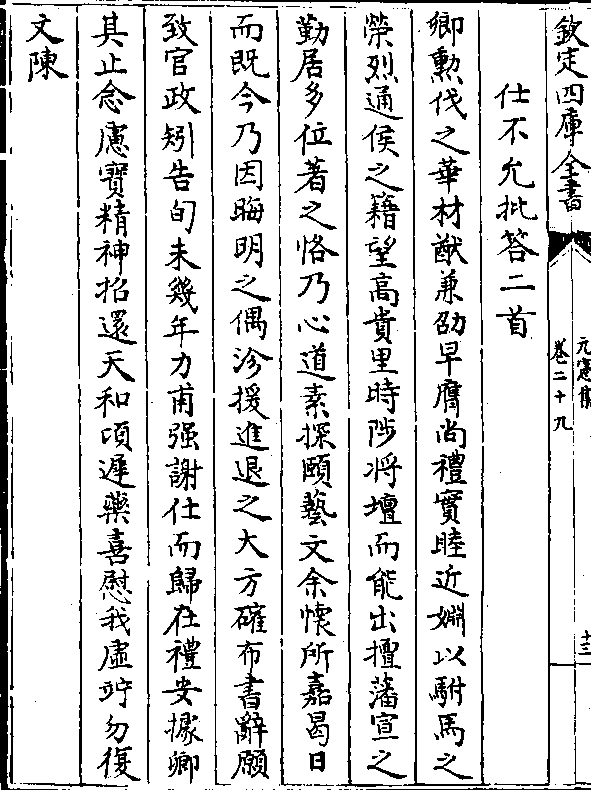 欽定四庫全書
元憲集
卷二十九
十三
仕不允批答二首
卿勲伐之華材猷兼劭早膺尚禮實睦近婣以駙馬之
榮烈通侯之籍望高貴里時陟将壇而能出擅藩宣之
勤居多位著之恪乃心道素探頤藝文余懷所嘉曷日
而既今乃因晦明之偶沴援進退之大方確布書辭願
致官政矧告旬未幾年力甫强謝仕而歸在禮安據卿
其止念慮寳精神招還天和頃遲藥喜慰我虚竚勿復
文陳